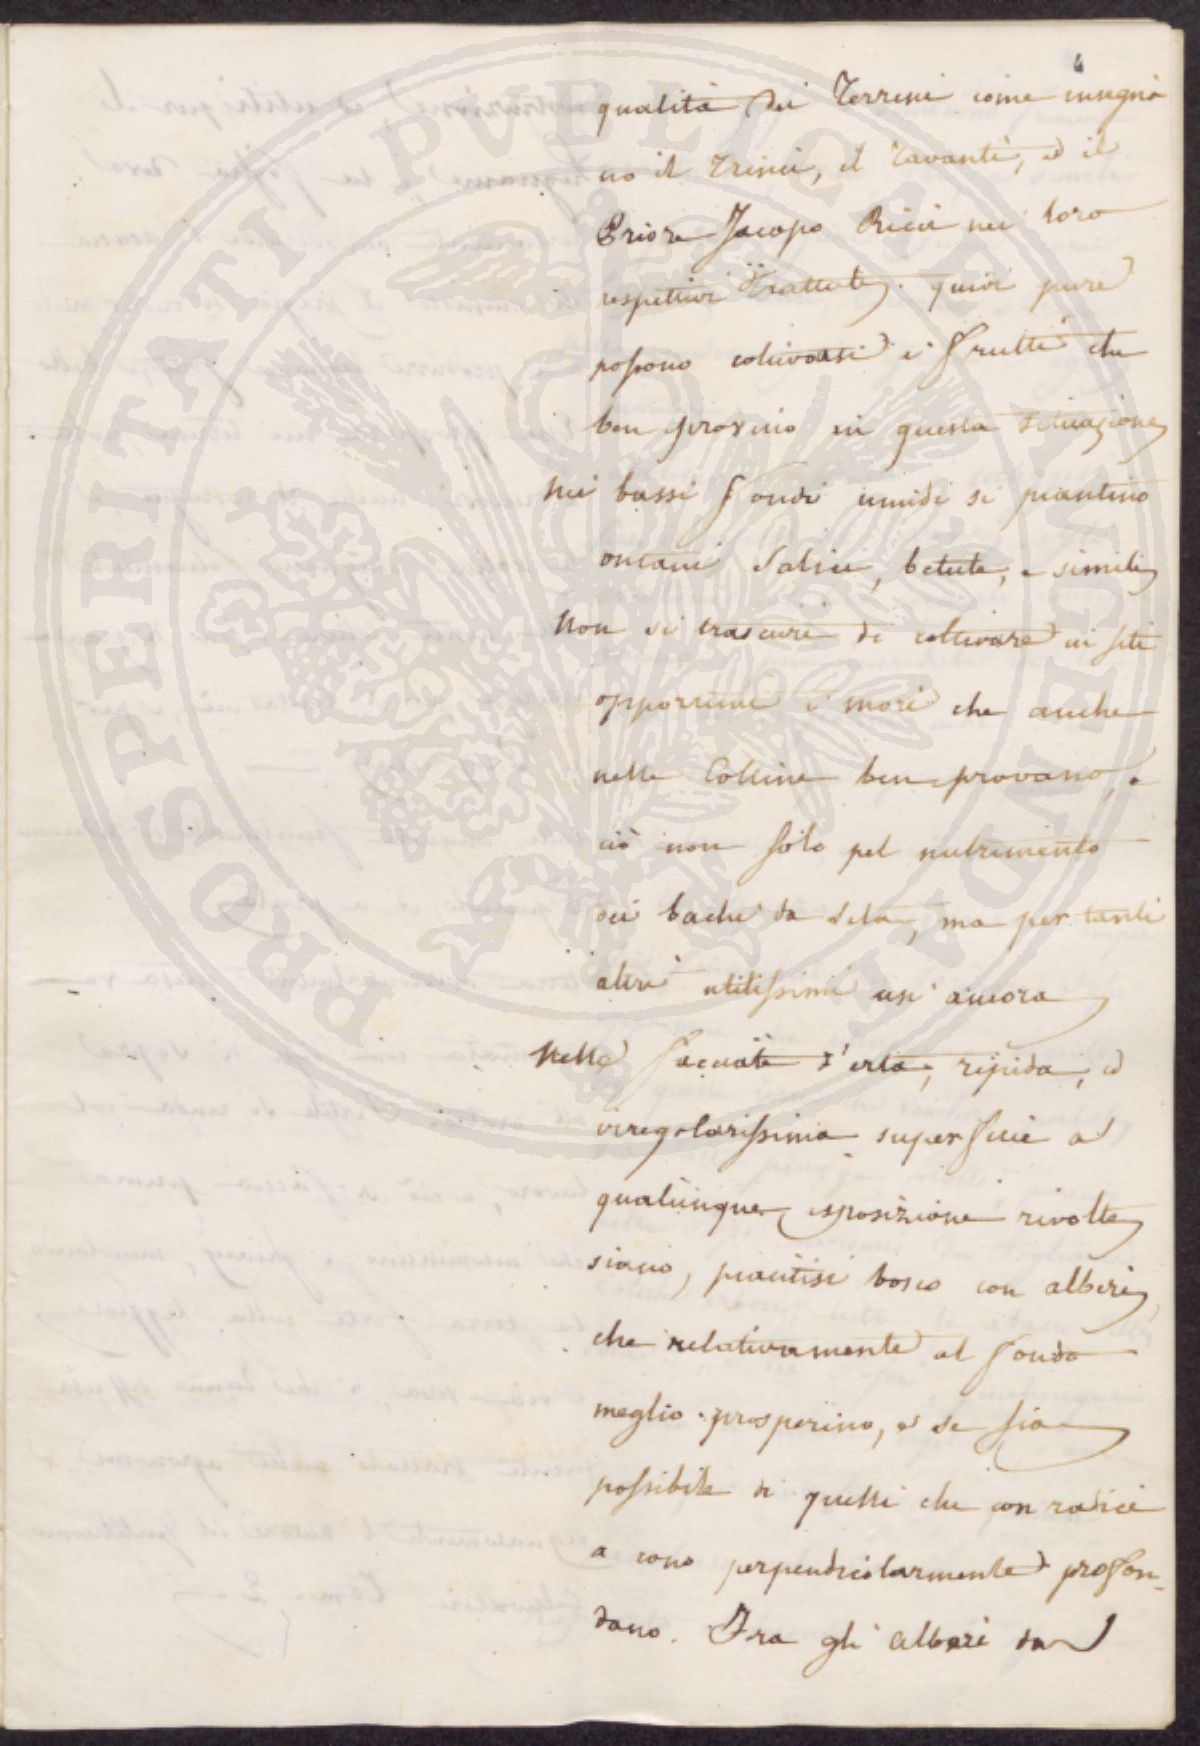 4
qualità dei Terreni come insegna
no il Trinci, il Tavanti, ed il
Priore Jacopo Ricci nei loro
respettivi Trattati. quivi pure
possono coltivarsi i frutti che
ben provino in questa situazione
Nei bassi fondi umidi si piantino
ontani salici, betule, e simili
Non si trascuri di coltivare in siti
opportuni i mori che anche
nelle Colline ben provano, e
ciò non solo pel nutrimento
dei bachi da seta, ma per tanti
altri utilissimi usi ancora
Nelle facciate d'erta, ripida, ed
irregolarissima superficie a
qualunque esposizione rivolte
siano, piantisi bosco con alberi,
che relativamente al fondo
meglio prosperino, e se sia
possibile di quelli che con radici
a cono perpendicolarmente profon-
dano. Fra gli alberi da
PROSPERITATI PUBLICAE AUGENDAE